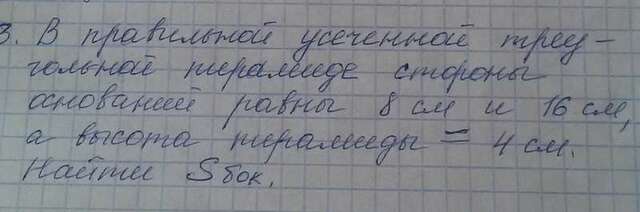 3. В правильной усеченной треу-
гольной пирамиде стороны
оснований равны 8 см и 16 см,
а высота пирамиды = 4 см.
Найти Sбок.